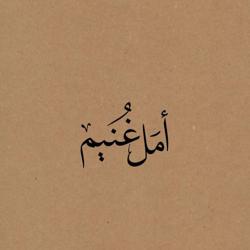 أمَل غُنَيم